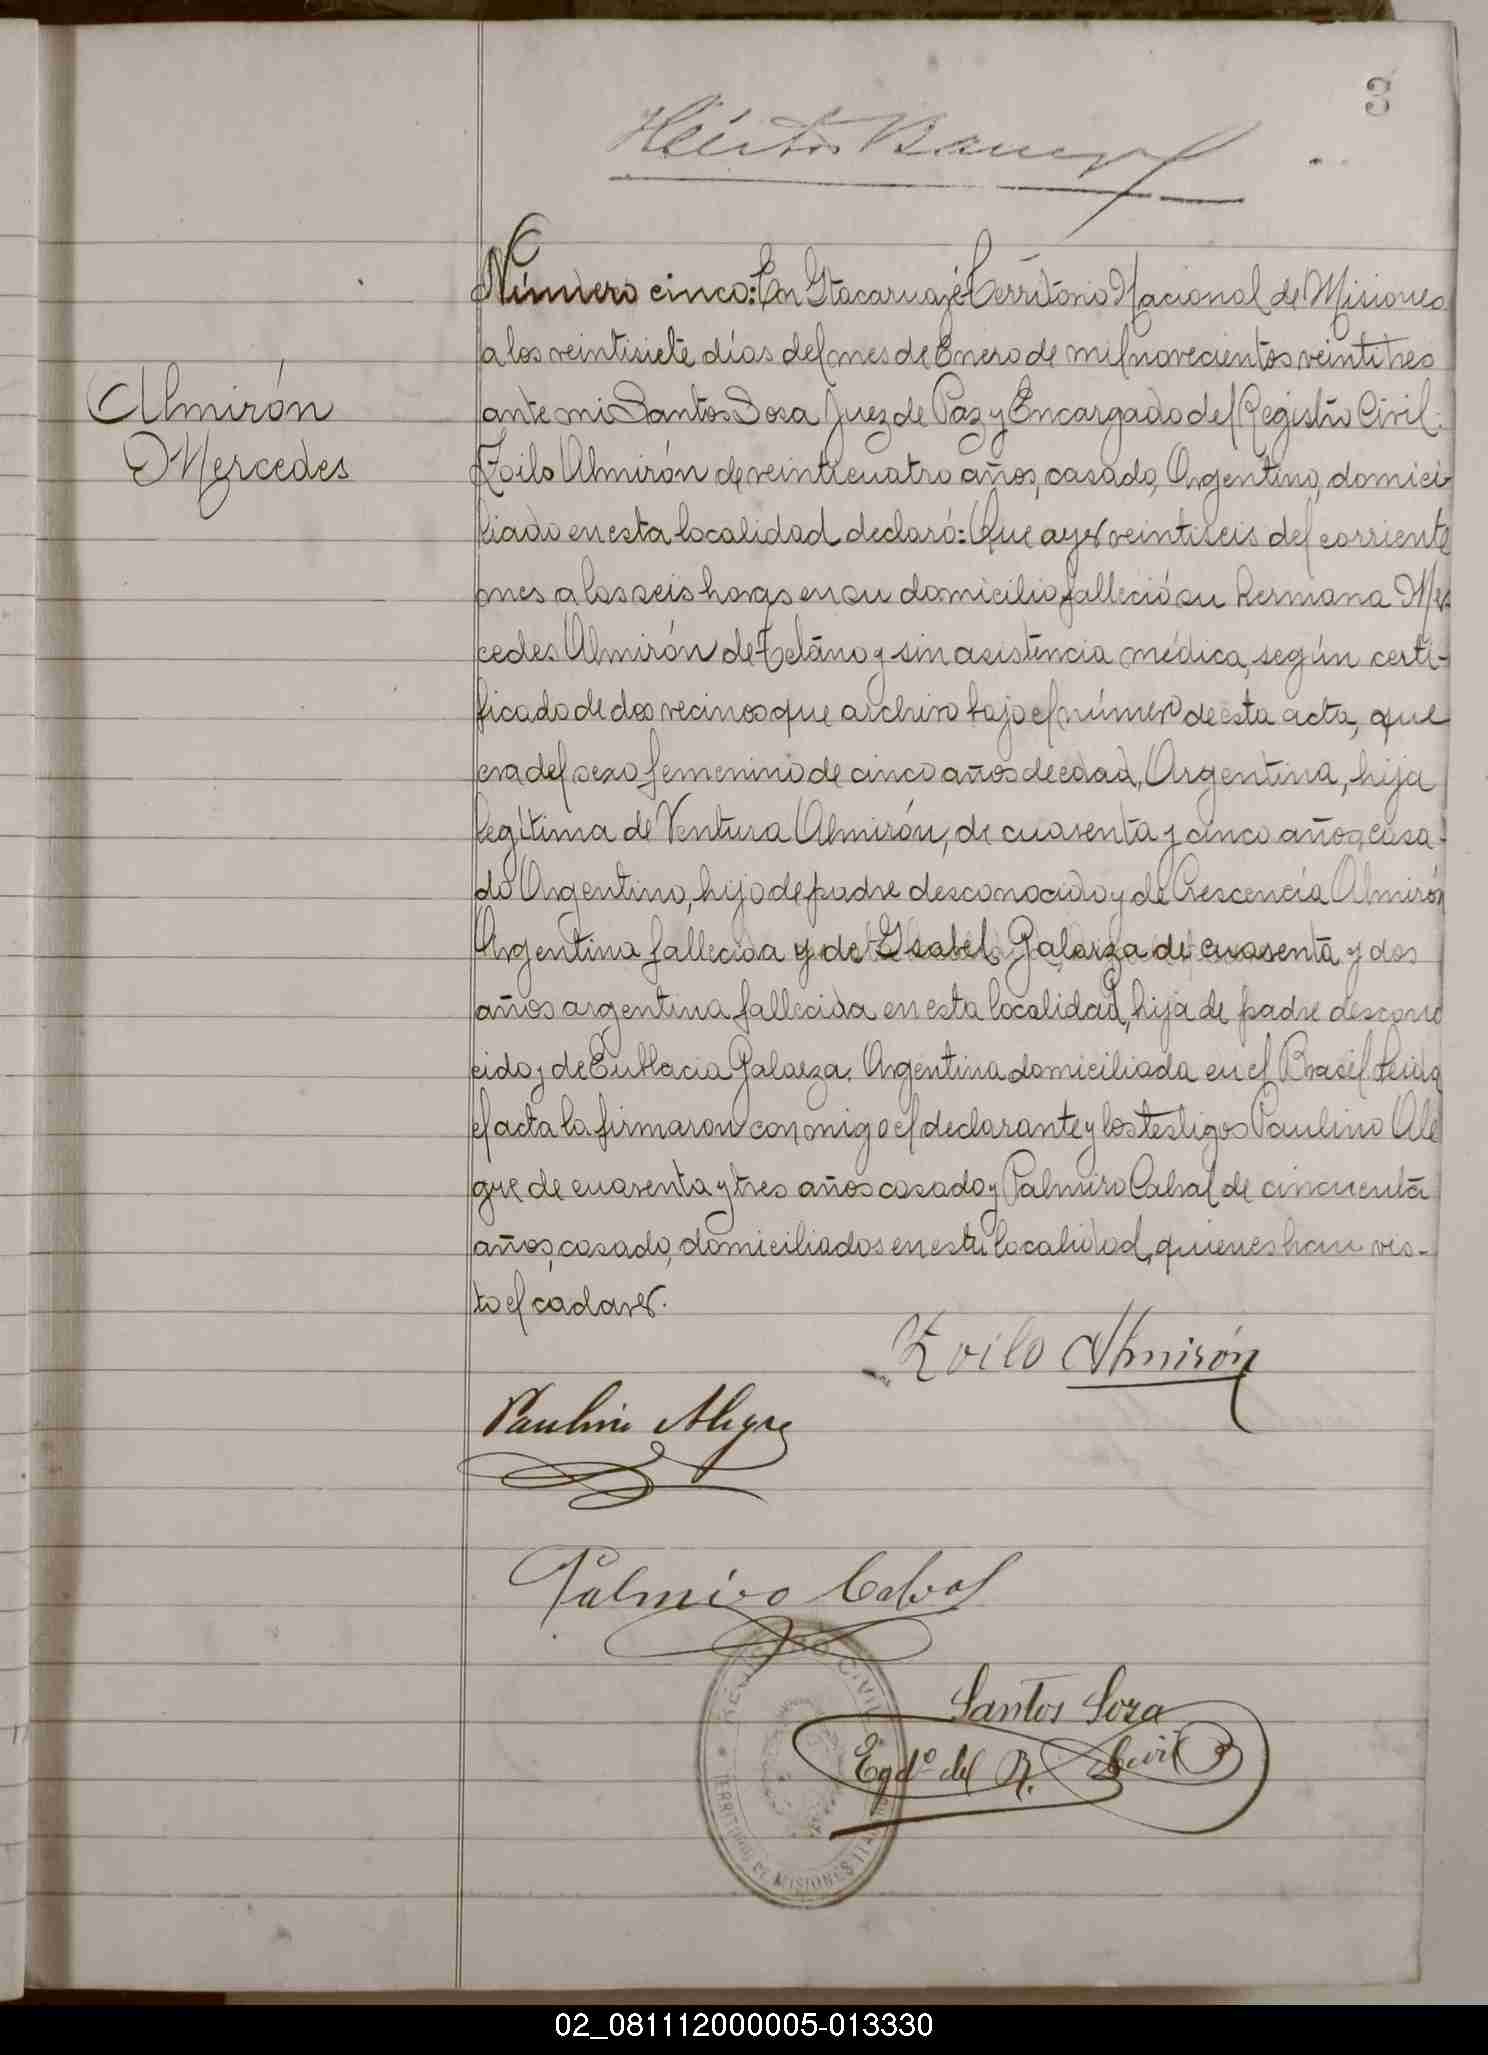 3
Número cinco: En Ytacaruaré Territorio Nacional de Misiones
a los veintisiete días del mes de Enero de mil novecientos veintitres
Almirón
ante mi Santos Sosa Juez de Paz y Encargado del Registro Civil.
Mercedes
Zoilo Almirón de veinticuatro años, casado, Argentino, domici-
liado en esta localidad declaró: Que ayer veintiseis del corriente
mes a las seis horas en su domicilio falleció su hermana Mer
cedes Almirón de Tetáno y sin asistencia médica, según certi-
ficado de dos vecinos que archivo bajo el número de esta acta, que
era del sexo femenino de cinco años de edad, Argentina, hija
legítima de Ventura Almirón, de cuarenta y cinco años, casa-
do Argentino, hijo de padre desconocido y de Crescencia Almirón
Argentina fallecida y de Ysabel Galarza de cuarenta y dos
años argentina fallecida en esta localidad, hija de padre descono
cido y de Galarza. Argentina domiciliada en el Brasil. Leida
el acta la firmaron conmigo el declarante y los testigos Paulino Ale
gre de cuarenta y tres años casado y Palmiro Cabral de cincuenta
años, casado, domiciliados en esta localidad, quienes han vis-
to el cadaver.
Zoilo Almirón
Paulino Alegre
Palmiro Cabral
REGISTRO CIVIL
TERRITORIO DE MISIONES
Santos Soza
Egdo. del R. Civil
02_081112000005-013330